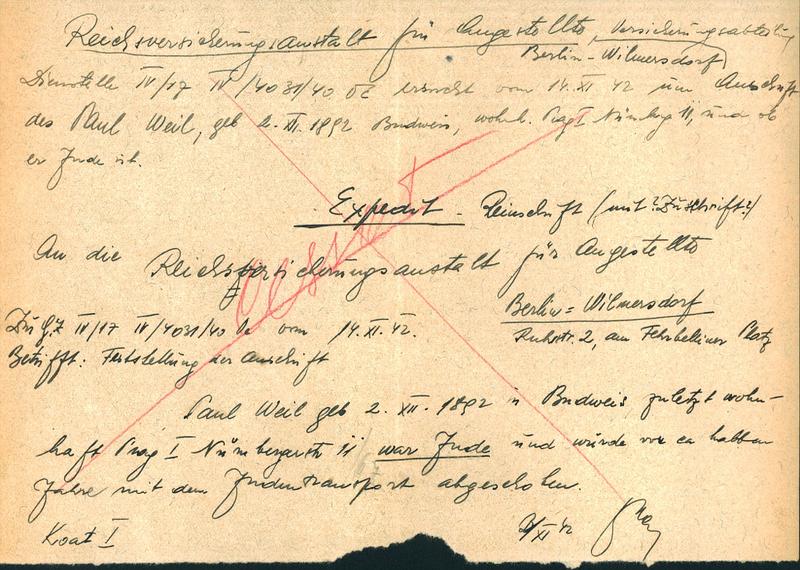 Reichsversicherungsanstalt für Angestellte, Versicherungsabteilung
Berlin-Wilmersdorf
Dienstelle IV/17 IV/4031/40 ersucht vom 14.XI.42 um Anschrift
des Paul Weil, geb 2.XII.1892 Budweis, wohnh. Prag I Nürnberg 11, und ob
er Jude ist.
Expedit - Reinschrift (mit ? Zuschrift ?)
An die Reichsversicherungsanstalt für Angestellte
Berlin = Wilmersdorf
Ruhrstr. 2, am Fehrbelliner Platz
Zu G.Z IV/17 IV/4031/40 vom 14.XI.42.
Betrifft: Feststellung der Anschrift
Paul Weil geb 2.XII.1892 in Budweis zuletzt wohn-
haft Prag I 11 war Jude und wurde vor ca halbem
Jahre mit dem Judentransport abgeschoben.
Koat I
XI 42